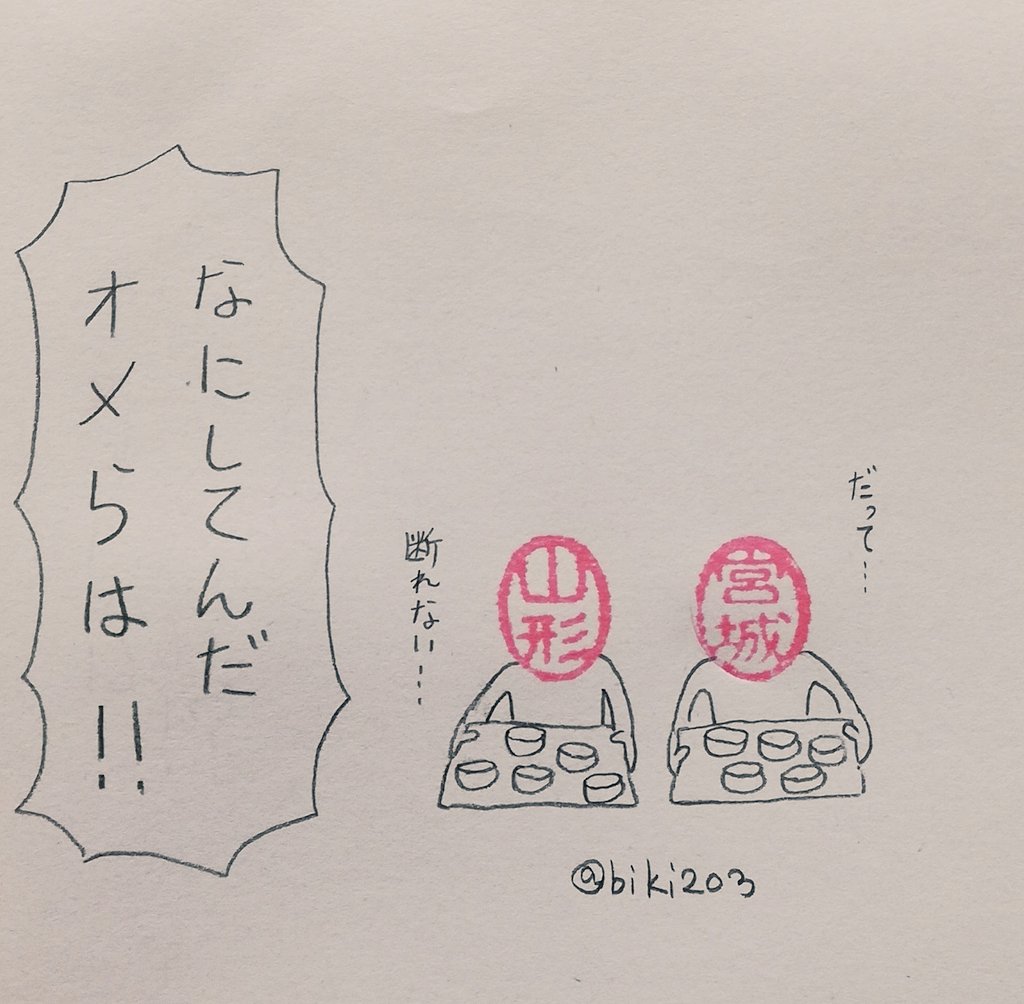 だって…
宮城
山形
断れない…
なにしてんだ
オメらは!!
@biki203